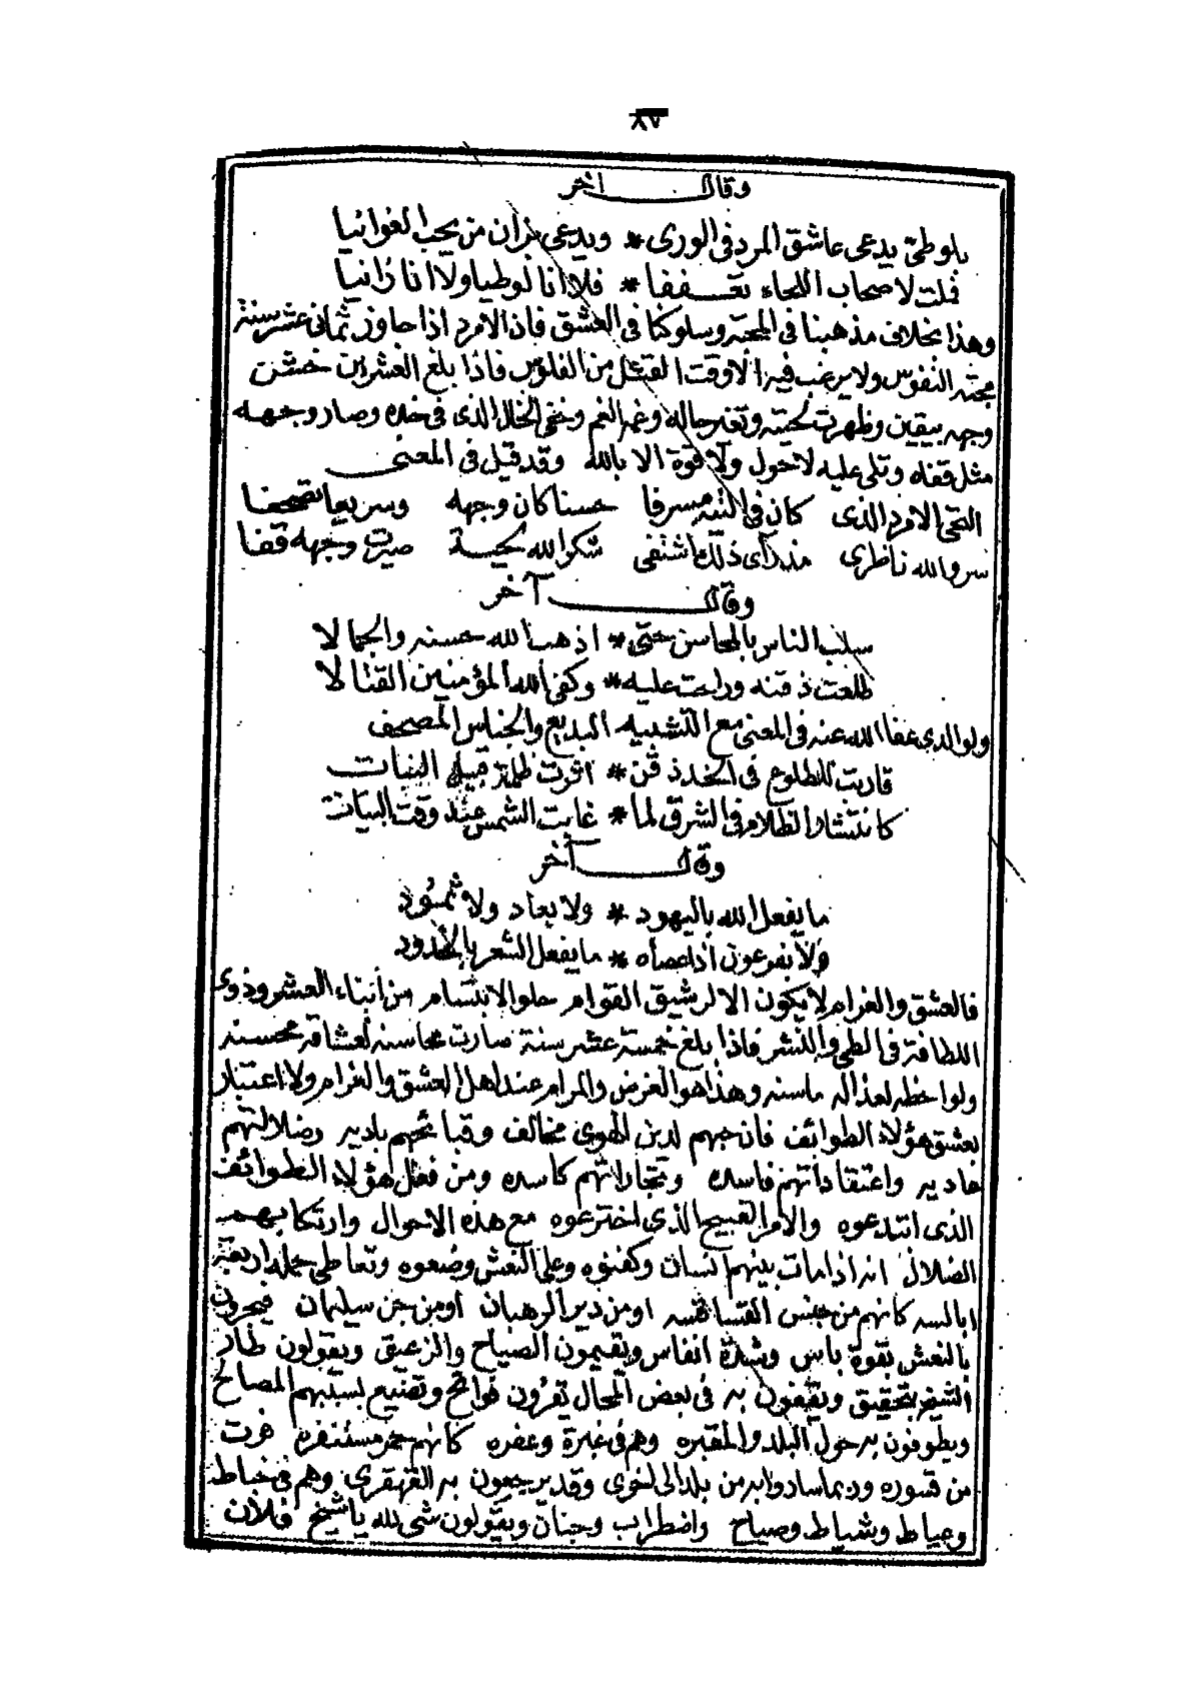 ٨٧
وقال آخر
بلوطي يدعى عاشق المرد في الورى * ويدعى بزان من يحب الغوانيا
فملت لاصحاب اللحاء تعففا * فلا انا لوطيا ولا انا زانيا
وهذا بخلاف مذهبنا في المحبة وسلوكنا في العشق فان الامرد اذا جاوز ثمانى عشر سنة
مجته النفوس ولا يرغب فيه الا وقت القتل من الفلوس فاذا بلغ العشرين خشن
وجهه بيقين وظهرت لحيته وتغير حاله وغمه الغم وخفى الخال الذى في خده وصار وجهه
مثل قفاه وتلى عليه لا حول ولا قوة الا بالله وقد قيل في المعنى
التحى الامرد الذى كان في التيه مسرفا حسنا كان وجهه وسريعا تصحفا
سر والله ناظرى مذ رأى ذلك اشتفى شكر الله لحية صيرت وجهه قفا
وقال آخر
سلب الناس بالمحاسن حتى * اذهب الله حسنه والجمالا
طلعت ذقنه وراحت عليه * وكفى الله المؤمنين القتالا
ولوالدى عفا الله عنه في المعنى مع التشبيه البديع والجناس المصحف
قاربت للطلوع في الخد ذقن * اثرت ظلمة قبيل النبات
كانتشار الظلام في الشرق لما * غابت الشمس عند وقت البيات
وقال آخر
ما يفعل الله باليهود * ولا بعاد ولا ثمود
ولا بفرعون اذ عصاه * ما يفعل الشعر بالخدود
فالعشق والغرام لا يكون الا لرشيق القوام حلو الابتسام من أبناء العشر وذوى
اللطافة في الطى والنشر فاذا بلغ خمسة عشر سنة صارت محاسنه لعشاقه محسنه
ولواحظه لعذاله ماسنه وهذا هو الغرض والمرام عند اهل العشق والغرام ولا اعتبار
بعشق هؤلاء الطوائف فان حبهم لدين الهوى مخالف وقبائحهم باديه وضلالتهم
عاديه واعتقاداتهم فاسده وتجاراتهم كاسده ومن فعل هؤلاء الطوائف
الذى ابتدعوه والامر القبيح الذى اخترعوه مع هذه الاحوال وارتكابهم
الضلال انه اذا مات بينهم انسان وكفنوه وعلى النعش وضعوه وتعاطى حمله اربعة
ابالسه كانهم من جنس القساقسه او من دير الرهبان او من جن سليمان فيجرون
بالنعش بقوة باس وشدة انفاس ويقيمون الصياح والزعيق ويقولون طار
الشيخ بتحقيق ويقفون به في بعض المحال يقرؤن فواتح وتضيع بسببهم المصالح
ويطوفون به حول البلد والمقبره وهم في غبرة وعفره كانهم حمر مستنفره فرت
من قسوره وربما ساروا به من بلد الى اخرى وقد يرجعون به القهقرى وهم في خباط
وعياط وشياط وصياح واضطراب وجنان ويقولون شى لله يا شيخ فلان